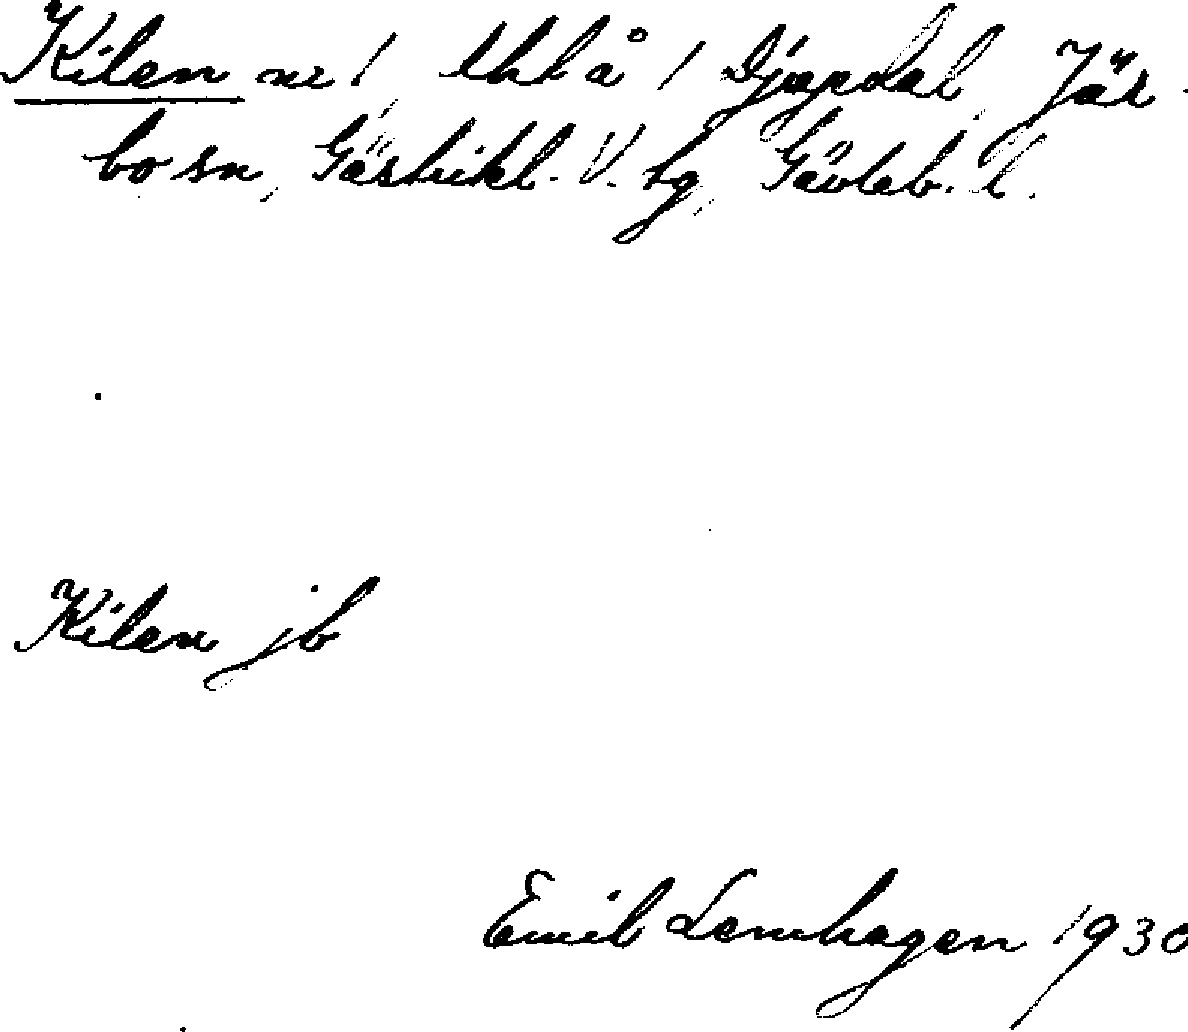 Kilen nr 1, thl å 1 Djupdal, Jär-
bo sn, Gästrikl. V. tg, Gävleb. l.
Kilen jb
Emil Lemhagen 1930